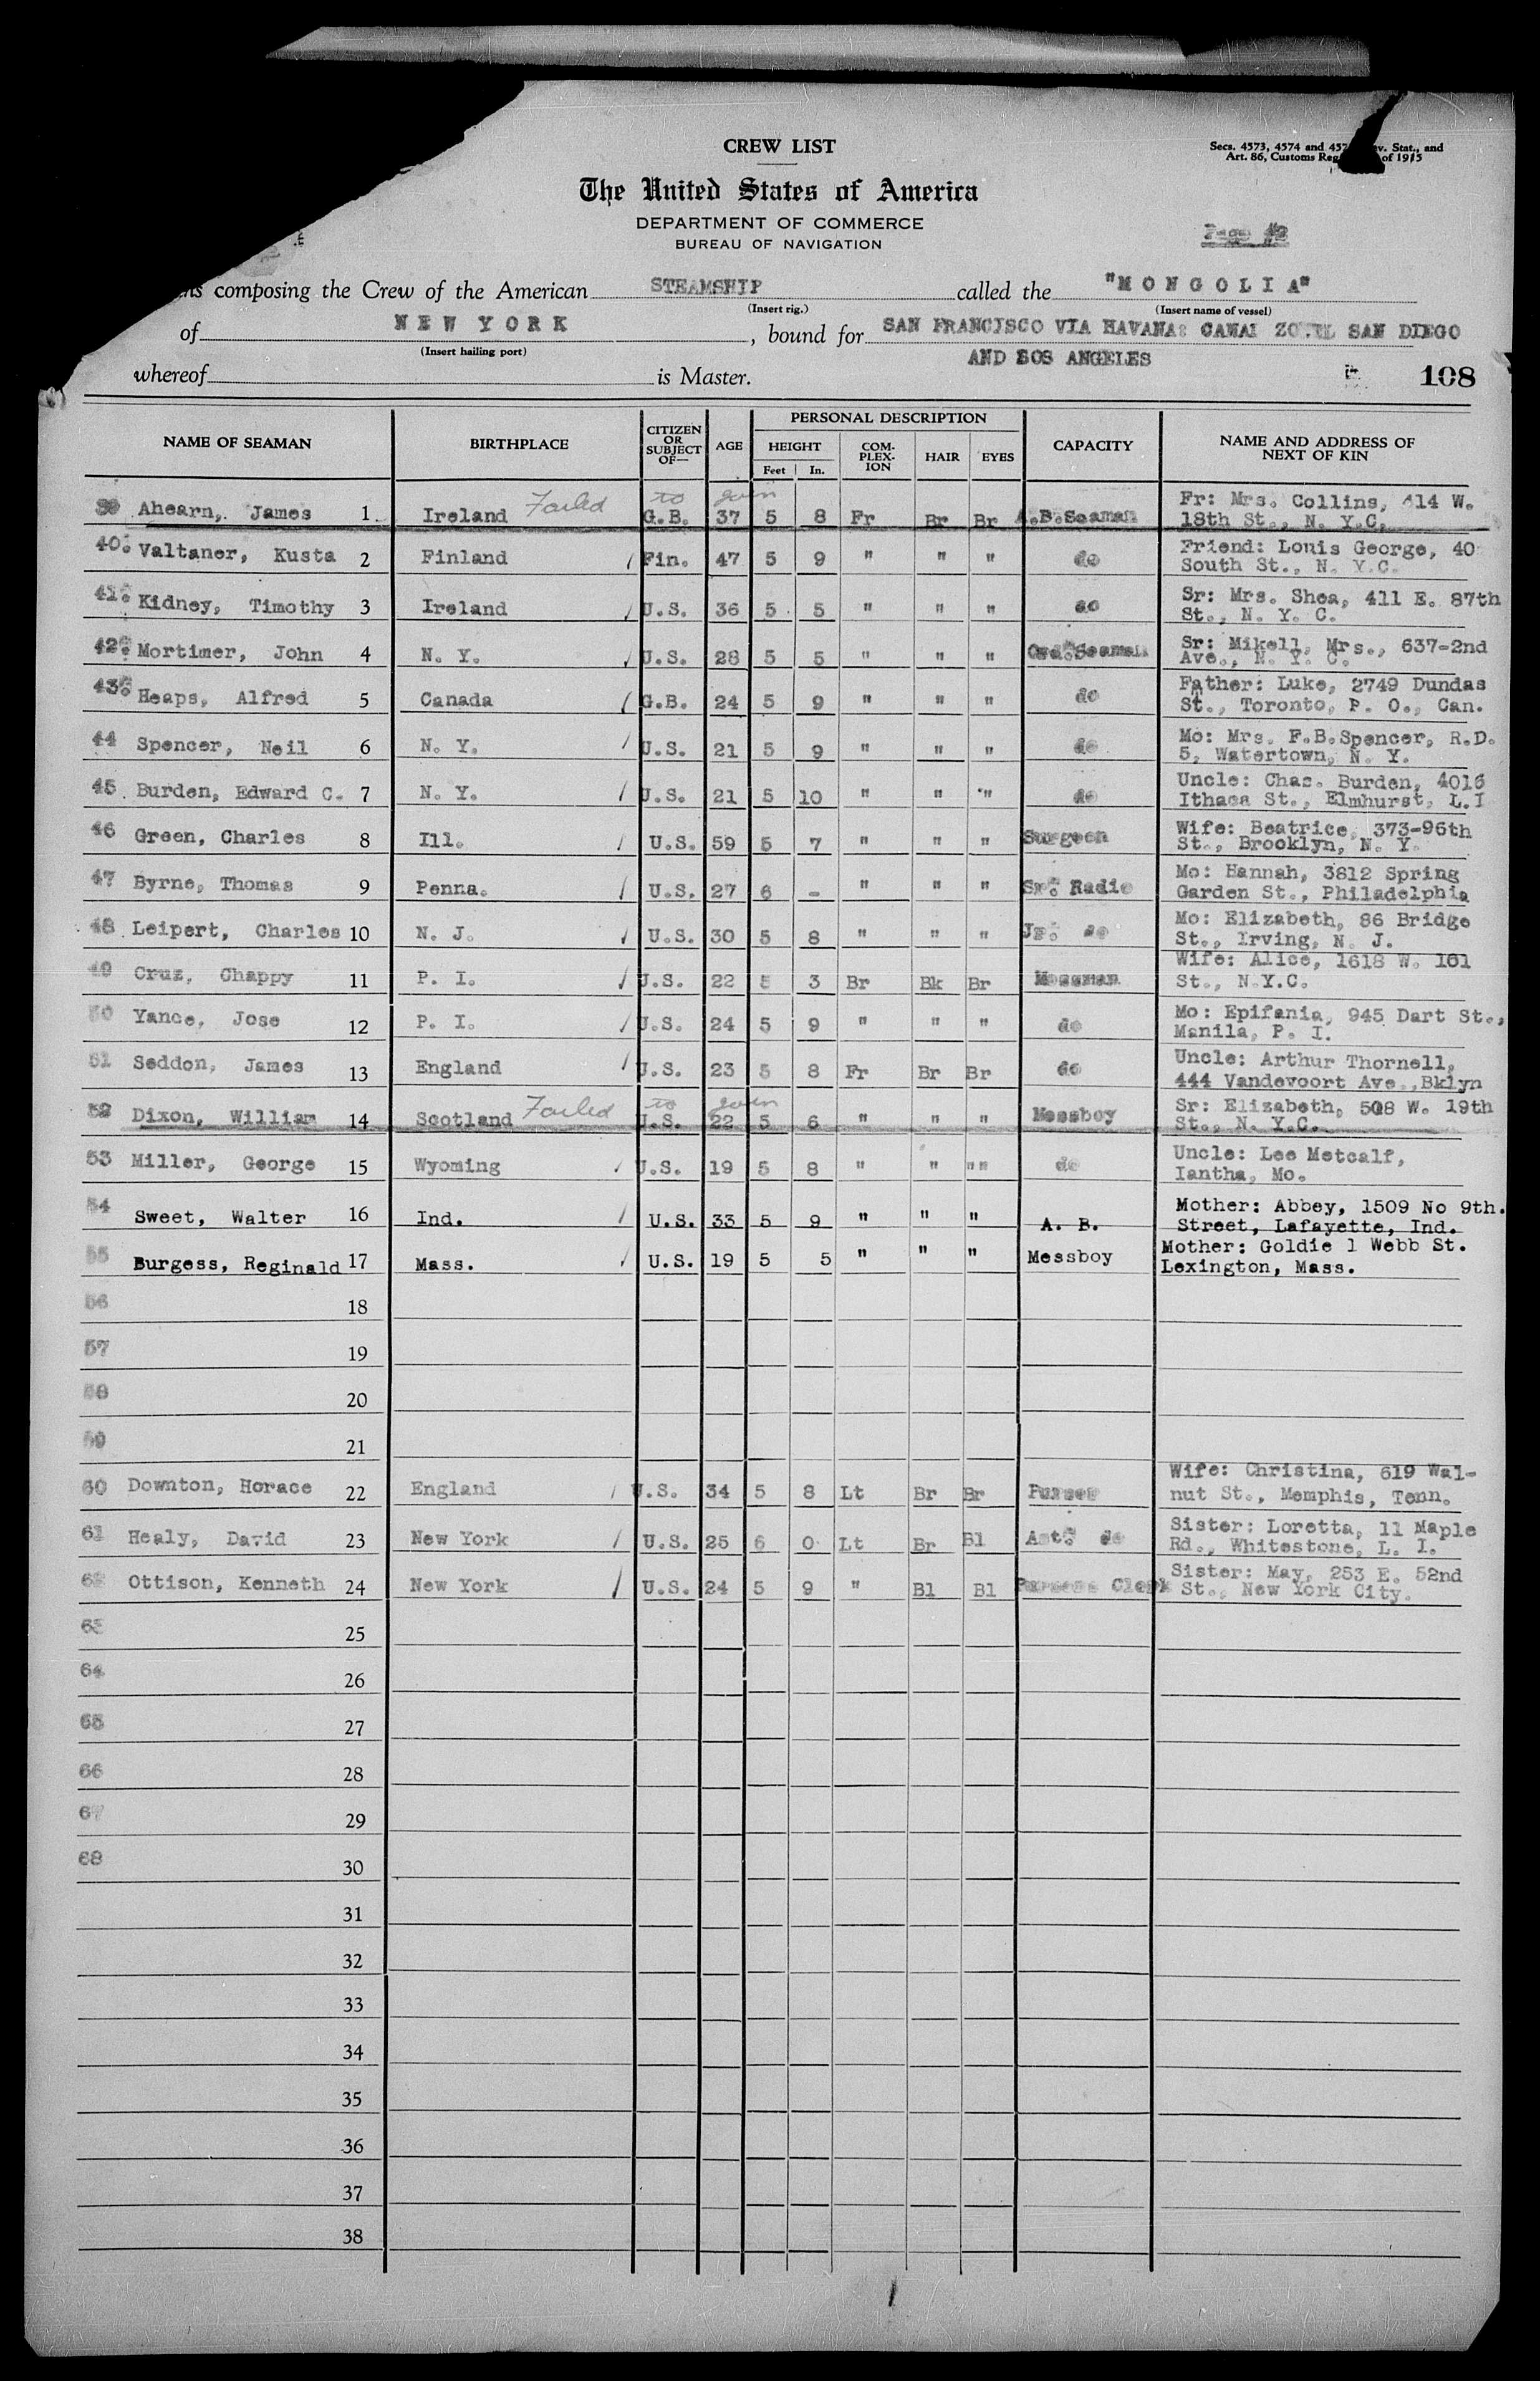 CREW LIST
Secs. 4573, 4574 and 457 v. Stat., and
Art. 86, Customs Reg of 1915
The United States of America
DEPARTMENT OF COMMERCE
BUREAU OF NAVIGATION
Page #2
ns composing the Crew of the American STEAMSHIP called the "MONGOLIA"
(Insert rig.) (Insert name of vessel)
of NEW YORK , bound for SAN FRANCISCO VIA HAVANA: CANAL SAN DIEGO
(Insert hailing port) AND LOS ANGELES
whereof is Master. 108
NAME OF SEAMAN BIRTHPLACE CITIZEN OR SUBJECT OF— AGE PERSONAL DESCRIPTION CAPACITY NAME AND ADDRESS OF NEXT OF KIN
HEIGHT COM-PLEX-ION HAIR EYES
Feet In.
Failed to join
39 Ahearn, James 1 Ireland G.B. 37 5 8 Fr Br Br A.B.Seaman Fr: Mrs. Collins, 414 W.
18th St., N. Y.C.
40. Valtaner, Kusta 2 Finland Fin. 47 5 9 " " " do Friend: Louis George, 40
South St., N. Y.C.
41. Kidney, Timothy 3 Ireland U.S. 36 5 5 " " " do Sr: Mrs. Shea, 411 E. 87th
St., N. Y. C.
42. Mortimer, John 4 N. Y. U.S. 28 5 5 " " " Ord.Seaman Sr: Mikell, Mrs., 637-2nd
Ave., N. Y. C.
43. Heaps, Alfred 5 Canada G.B. 24 5 9 " " " do Father: Luke, 2749 Dundas
St., Toronto, P. O., Can.
44 Spencer, Neil 6 N. Y. U.S. 21 5 9 " " " do Mo: Mrs. F.B.Spencer, R.D.
5, Watertown, N. Y.
45. Burden, Edward C. 7 N. Y. U.S. 21 5 10 " " " do Uncle: Chas. Burden, 4016
Ithaca St., Elmhurst, L.I
46 Green, Charles 8 Ill. U.S. 59 5 7 " " " Surgeon Wife: Beatrice, 373-96th
St., Brooklyn, N. Y.
47 Byrne, Thomas 9 Penna. U.S. 27 6 - " " " Sr. Radio Mo: Hannah, 3812 Spring
Garden St., Philadelphia
48 Leipert, Charles 10 N. J. U.S. 30 5 8 " " " Jr. do Mo: Elizabeth, 86 Bridge
St., Irving, N. J.
49 Cruz, Chappy 11 P. I. U.S. 22 5 3 Br Bk Br Messman Wife: Alice, 1618 W. 161
St., N.Y.C.
50 Yance, Jose 12 P. I. U.S. 24 5 9 " " " do Mo: Epifania, 945 Dart St.,
Manila, P. I.
51 Seddon, James 13 England U.S. 23 5 8 Fr Br Br do Uncle: Arthur Thornell,
444 Vandevoort Ave.,Bklyn
Failed to join
52 Dixon, William 14 Scotland U.S. 22 5 6 " " " Messboy Sr: Elizabeth, 508 W. 19th
St., N. Y.C.
53 Miller, George 15 Wyoming U.S. 19 5 8 " " "" do Uncle: Lee Metcalf,
Iantha, Mo.
54 Sweet, Walter 16 Ind. U.S. 33 5 9 " " " A. B. Mother: Abbey, 1509 No 9th.
Street, Lafayette, Ind.
55 Burgess, Reginald 17 Mass. U.S. 19 5 5 " " " Messboy Mother: Goldie 1 Webb St.
Lexington, Mass.
56 18
57 19
58 20
59 21
60 Downton, Horace 22 England U.S. 34 5 8 Lt Br Br Purser Wife: Christina, 619 Wal-
nut St., Memphis, Tenn.
61 Healy, David 23 New York U.S. 25 6 0 Lt Br Bl Ast. do Sister: Loretta, 11 Maple
Rd., Whitestone, L. I.
62 Ottison, Kenneth 24 New York U.S. 24 5 9 " Bl Bl Pursers Clerk Sister: May, 253 E. 52nd
St., New York City.
63 25
64 26
65 27
66 28
67 29
68 30
31
32
33
34
35
36
37
38